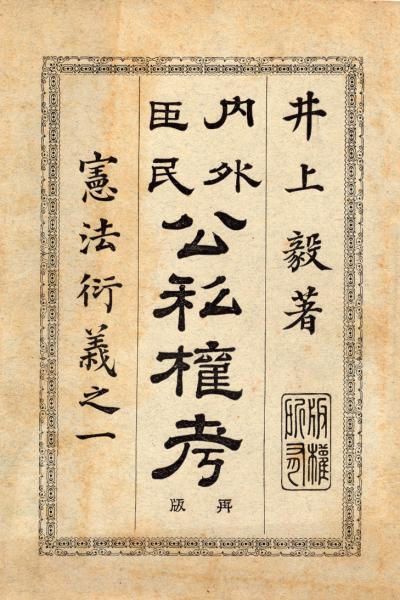 井上毅著
版權所有
內外臣民公私權考
再版
憲法衍義之一